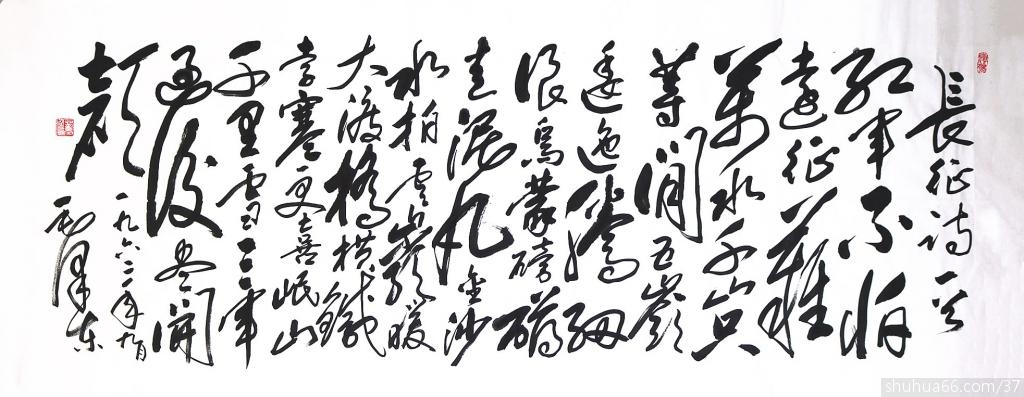 長征诗一首
红軍不怕
遠征難
萬水千山只
等閒五嶺
逶迤騰細
浪烏蒙磅礴
走泥丸金沙
水拍雲崖暖
大渡橋横鐵
索寒更喜岷山
千里雪三軍
過後尽開
颜
一九六二年
毛澤东
shuhua66.com/37